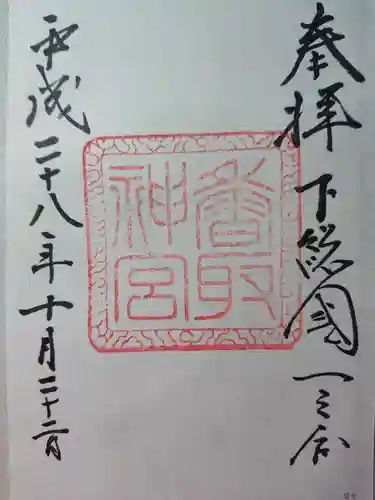 奉拝 下総國一之宮
香取神宮
平成二十八年十月二十二日